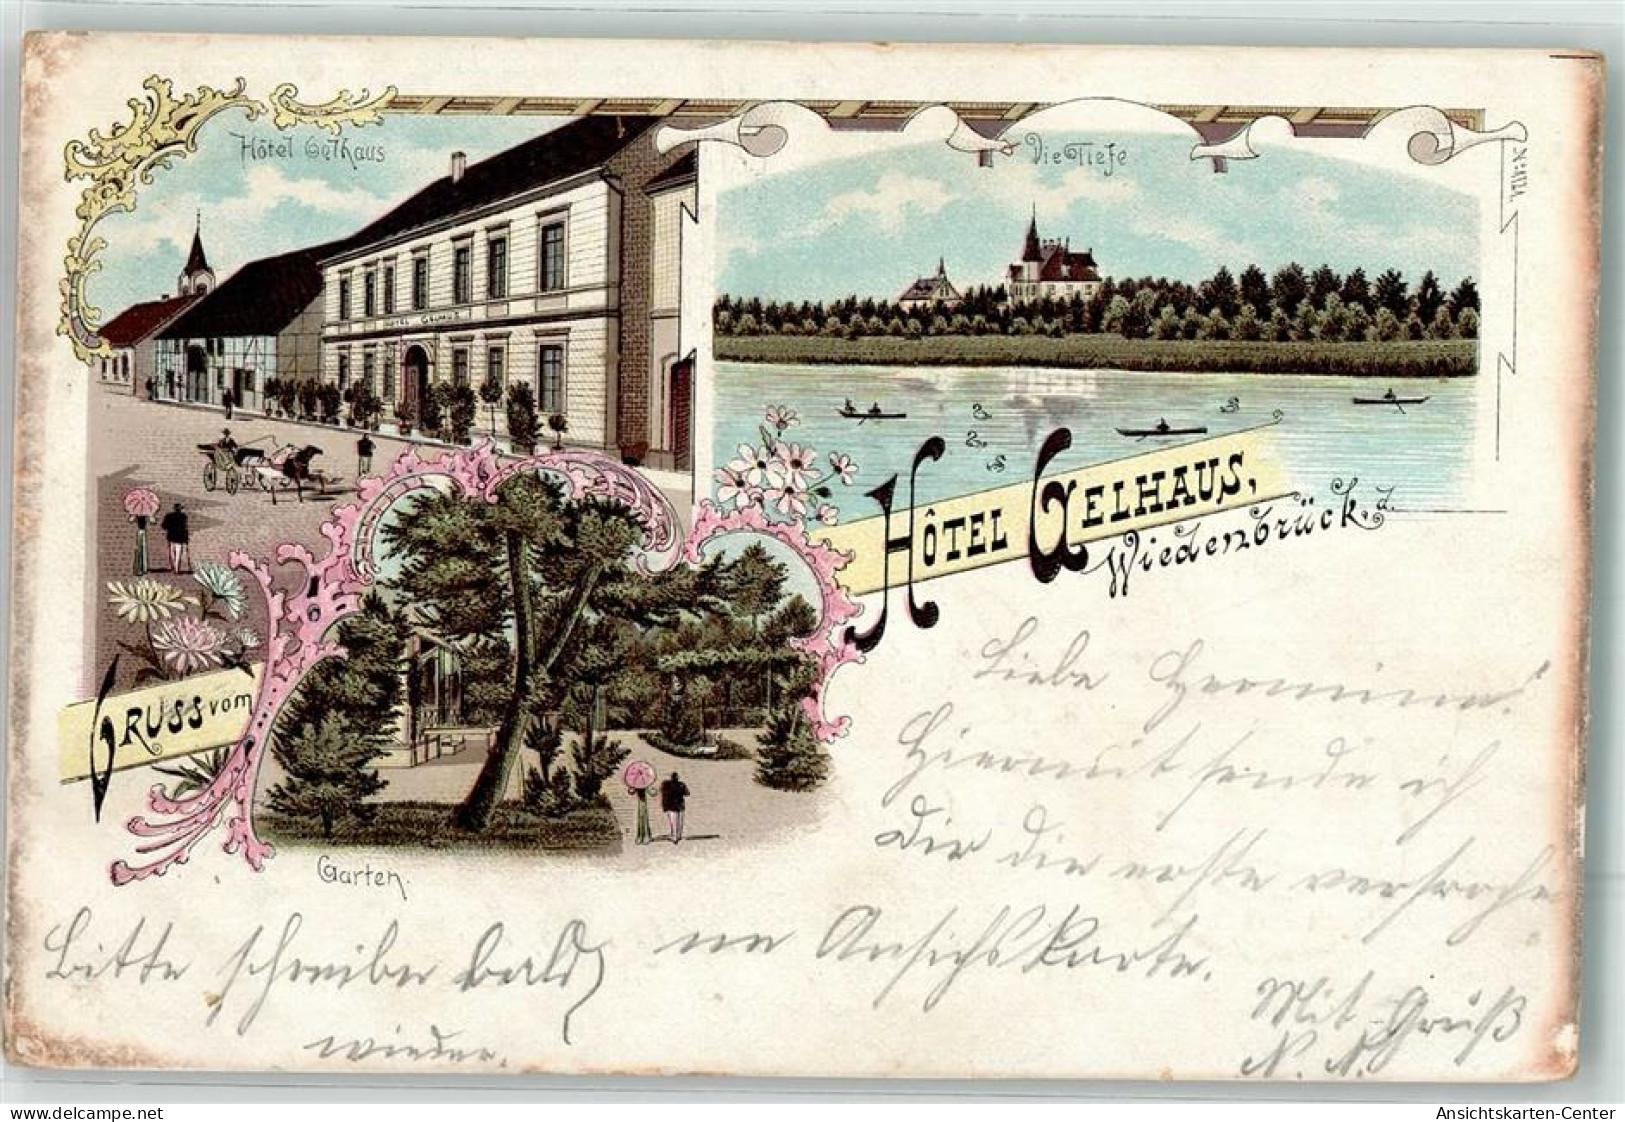 Hôtel Gelhaus
Die Tiefe
HOTEL GELHAUS
HÔTEL GELHAUS,
Wiedenbrück, d.
GRUSS vom
Garten.
Liebe Hermina!
Hiermit sende ich
Dir die erste versproche
ne Ansichtskarte.
Bitte schreibe bald
wieder.
Mit Gruß
N. N.
Ansichtskarten-Center